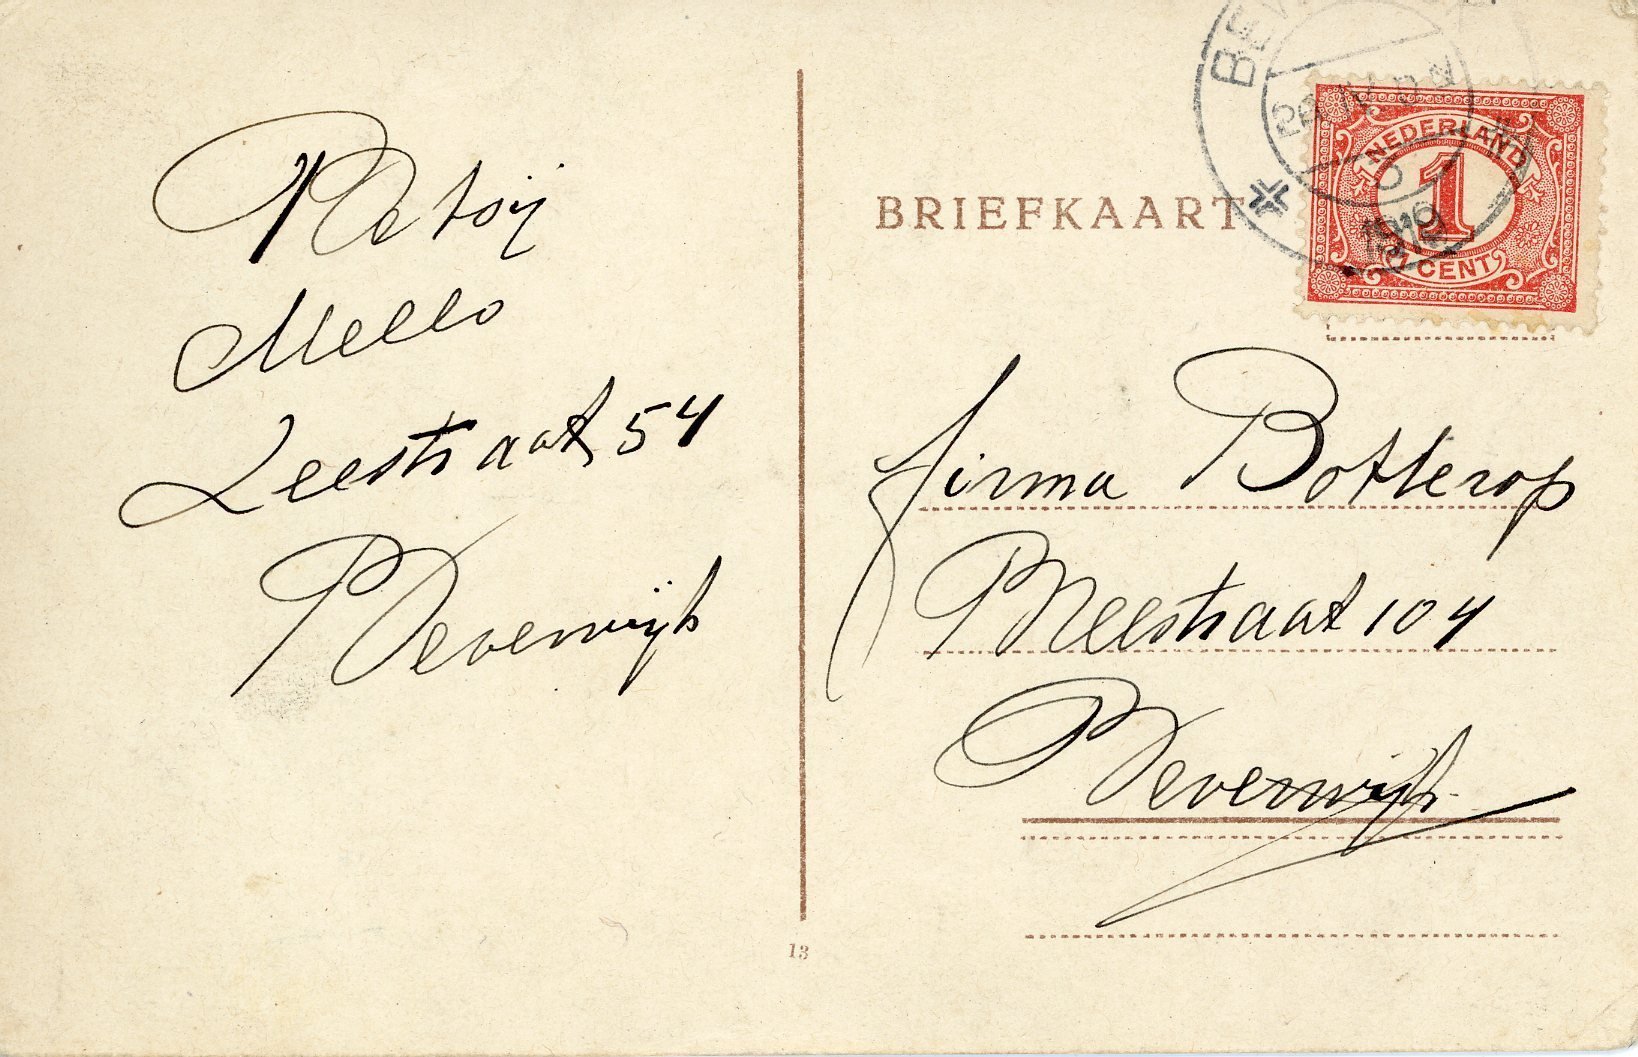 Mello
Leestraat 54
Beverwijk
BRIEFKAART
NEDERLAND
1
1 CENT
1919
firma Botterop
Breestraat 104
Beverwijk
13